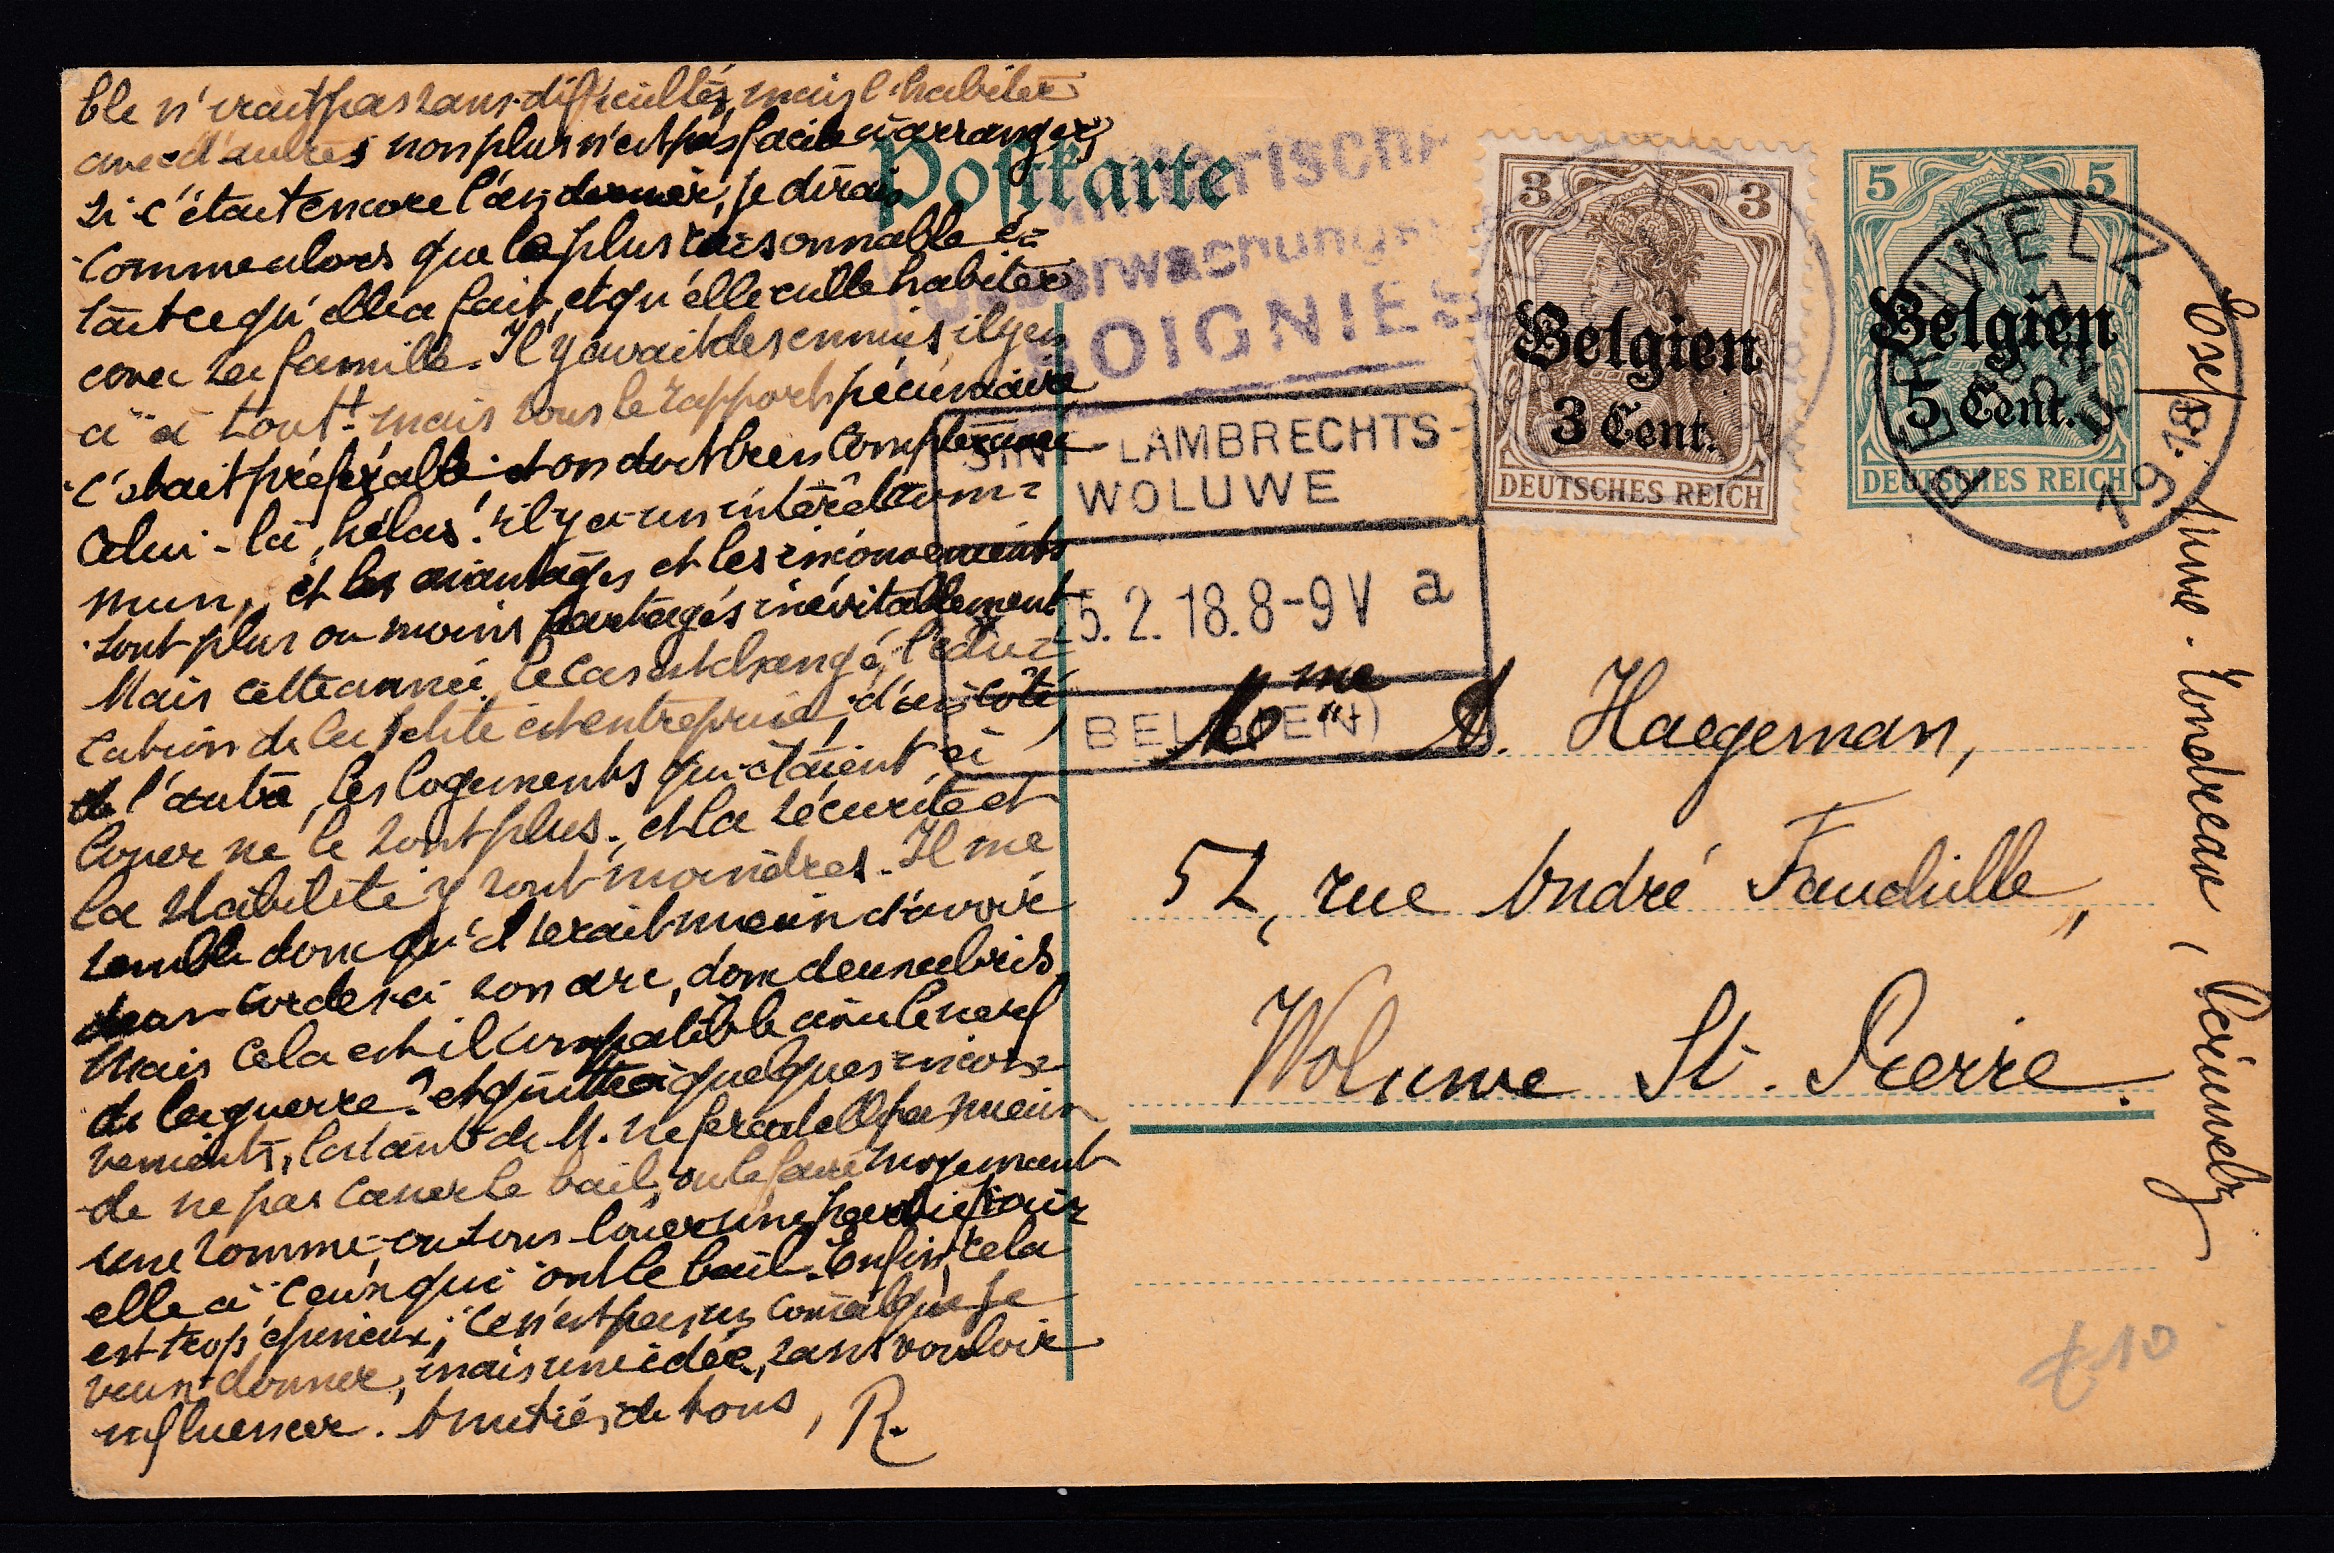 ble n'irait pas sans difficultés, mais l'habiter
avec d'autres non plus n'est pas facile à arranger,
si c'était encore l'an dernier, je dirais
comme alors que le plus raisonnable é=
tait ce qu'elle a fait, et qu'elle eut habiter
avec sa famille. Il y avait des ennuis, il y en
a à tout, mais sous le rapport pécuniaire
c'était préférable et on doit bien
celui-là, hélas! il y a un intérêt com=
mun, et les avantages et les inconvénients
sont plus ou moins partagés inévitablement
Mais cette année, le cas est changé, l'édu=
cation de la petite est entreprise, d'un côté,
de l'autre, les logements qui étaient à
louer ne le sont plus, et la sécurité et
la stabilité y sont moindres. Il me
semble donc qu'il serait mieux d'avoir
deux cordes à son arc, donc deux abris
Mais cela est-il compatible avec le nerf
de la guerre? et quitte à quelques incon=
venients, la tante de M. ne ferait-elle pas mieux
de ne pas casser le bail, ou le faire moyennant
une somme, ou sous louer une partie pour
elle à ceux qui ont le bail. Enfin, cela
est trop épineux; ce n'est pas un conseil que je
veux donner, mais une idée, sans vouloir
influencer. Amitiés de tous, R.
Postkarte
Ueberwachungs
SOIGNIES
SINT-LAMBRECHTS-
WOLUWE
5. 2. 18. 8-9 V a
BELGIEN)
3 3
Belgien
3 Cent.
DEUTSCHES REICH
5 5
Belgien
5 Cent.
DEUTSCHES REICH
PERUWELZ
Mme A. Haegeman,
52, rue André Fauchille,
Woluwe St. Pierre.
Exp: Mme. Tondreau, Péruwelz
£10